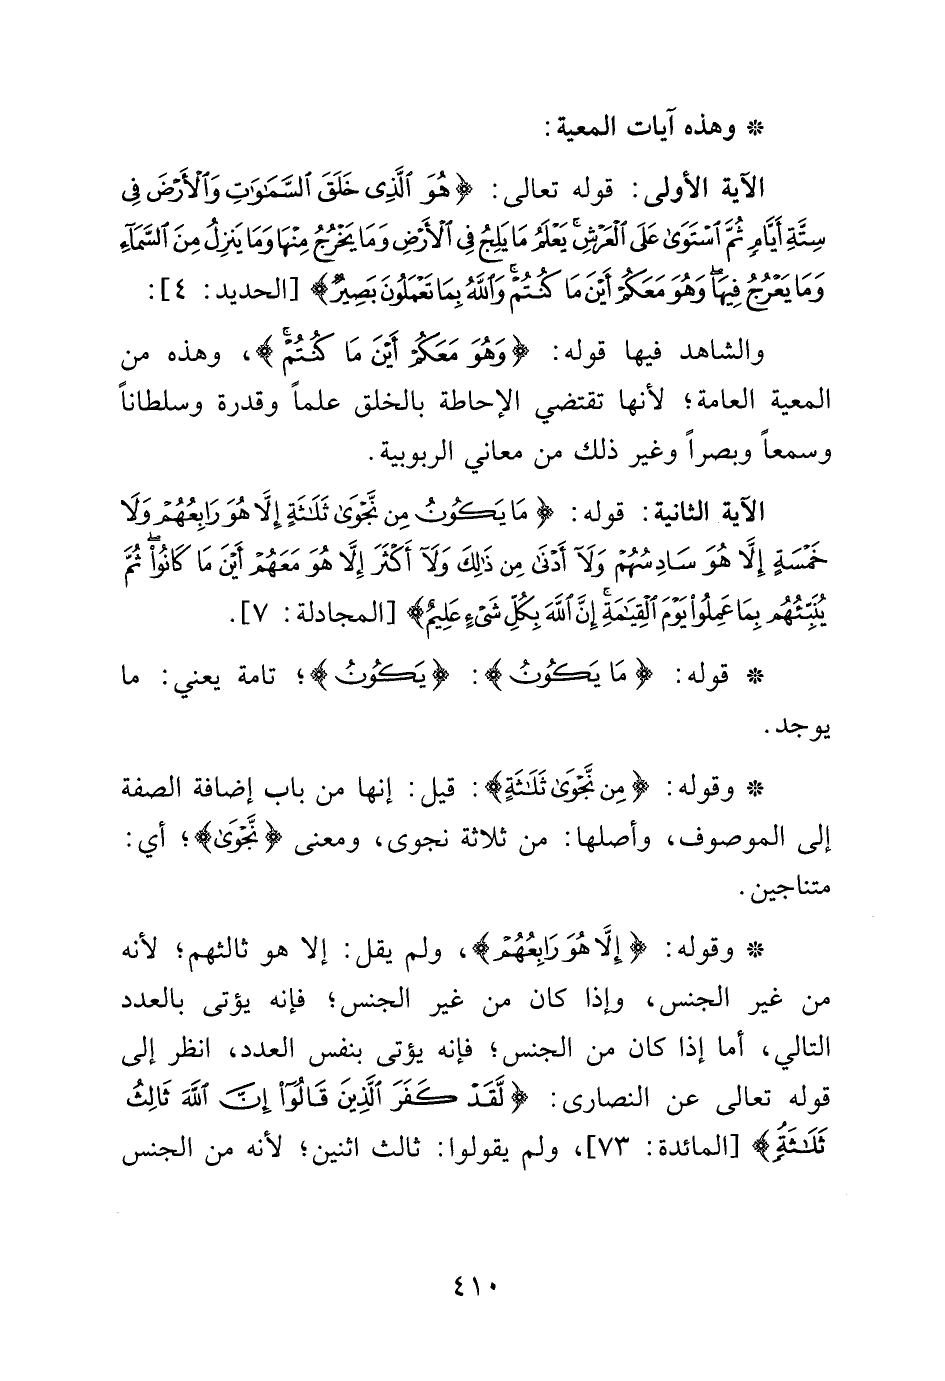 * وهذه آيات المعية:
الآية الأولى: قوله تعالى: ﴿هُوَ ٱلَّذِى خَلَقَ ٱلسَّمَٰوَٰتِ وَٱلْأَرْضَ فِى
سِتَّةِ أَيَّامٍ ثُمَّ ٱسْتَوَىٰ عَلَى ٱلْعَرْشِ ۚ يَعْلَمُ مَا يَلِجُ فِى ٱلْأَرْضِ وَمَا يَخْرُجُ مِنْهَا وَمَا يَنزِلُ مِنَ ٱلسَّمَآءِ
وَمَا يَعْرُجُ فِيهَا ۖ وَهُوَ مَعَكُمْ أَيْنَ مَا كُنتُمْ ۚ وَٱللَّهُ بِمَا تَعْمَلُونَ بَصِيرٌ﴾ [الحديد: ٤]:
والشاهد فيها قوله: ﴿وَهُوَ مَعَكُمْ أَيْنَ مَا كُنتُمْ ۚ﴾، وهذه من
المعية العامة؛ لأنها تقتضي الإحاطة بالخلق علماً وقدرة وسلطاناً
وسمعاً وبصراً وغير ذلك من معاني الربوبية.
الآية الثانية: قوله: ﴿مَا يَكُونُ مِن نَّجْوَىٰ ثَلَٰثَةٍ إِلَّا هُوَ رَابِعُهُمْ وَلَا
خَمْسَةٍ إِلَّا هُوَ سَادِسُهُمْ وَلَآ أَدْنَىٰ مِن ذَٰلِكَ وَلَآ أَكْثَرَ إِلَّا هُوَ مَعَهُمْ أَيْنَ مَا كَانُوا۟ ۖ ثُمَّ
يُنَبِّئُهُم بِمَا عَمِلُوا۟ يَوْمَ ٱلْقِيَٰمَةِ ۚ إِنَّ ٱللَّهَ بِكُلِّ شَىْءٍ عَلِيمٌ﴾ [المجادلة: ٧].
* قوله: ﴿مَا يَكُونُ﴾: ﴿يَكُونُ﴾؛ تامة يعني: ما
يوجد.
* وقوله: ﴿مِن نَّجْوَىٰ ثَلَٰثَةٍ﴾: قيل: إنها من باب إضافة الصفة
إلى الموصوف، وأصلها: من ثلاثة نجوى، ومعنى ﴿نَّجْوَىٰ﴾؛ أي:
متناجين.
* وقوله: ﴿إِلَّا هُوَ رَابِعُهُمْ﴾، ولم يقل: إلا هو ثالثهم؛ لأنه
من غير الجنس، وإذا كان من غير الجنس؛ فإنه يؤتى بالعدد
التالي، أما إذا كان من الجنس؛ فإنه يؤتى بنفس العدد، انظر إلى
قوله تعالى عن النصارى: ﴿لَّقَدْ كَفَرَ ٱلَّذِينَ قَالُوٓا۟ إِنَّ ٱللَّهَ ثَالِثُ
ثَلَٰثَةٍ﴾ [المائدة: ٧٣]، ولم يقولوا: ثالث اثنين؛ لأنه من الجنس
٤١٠